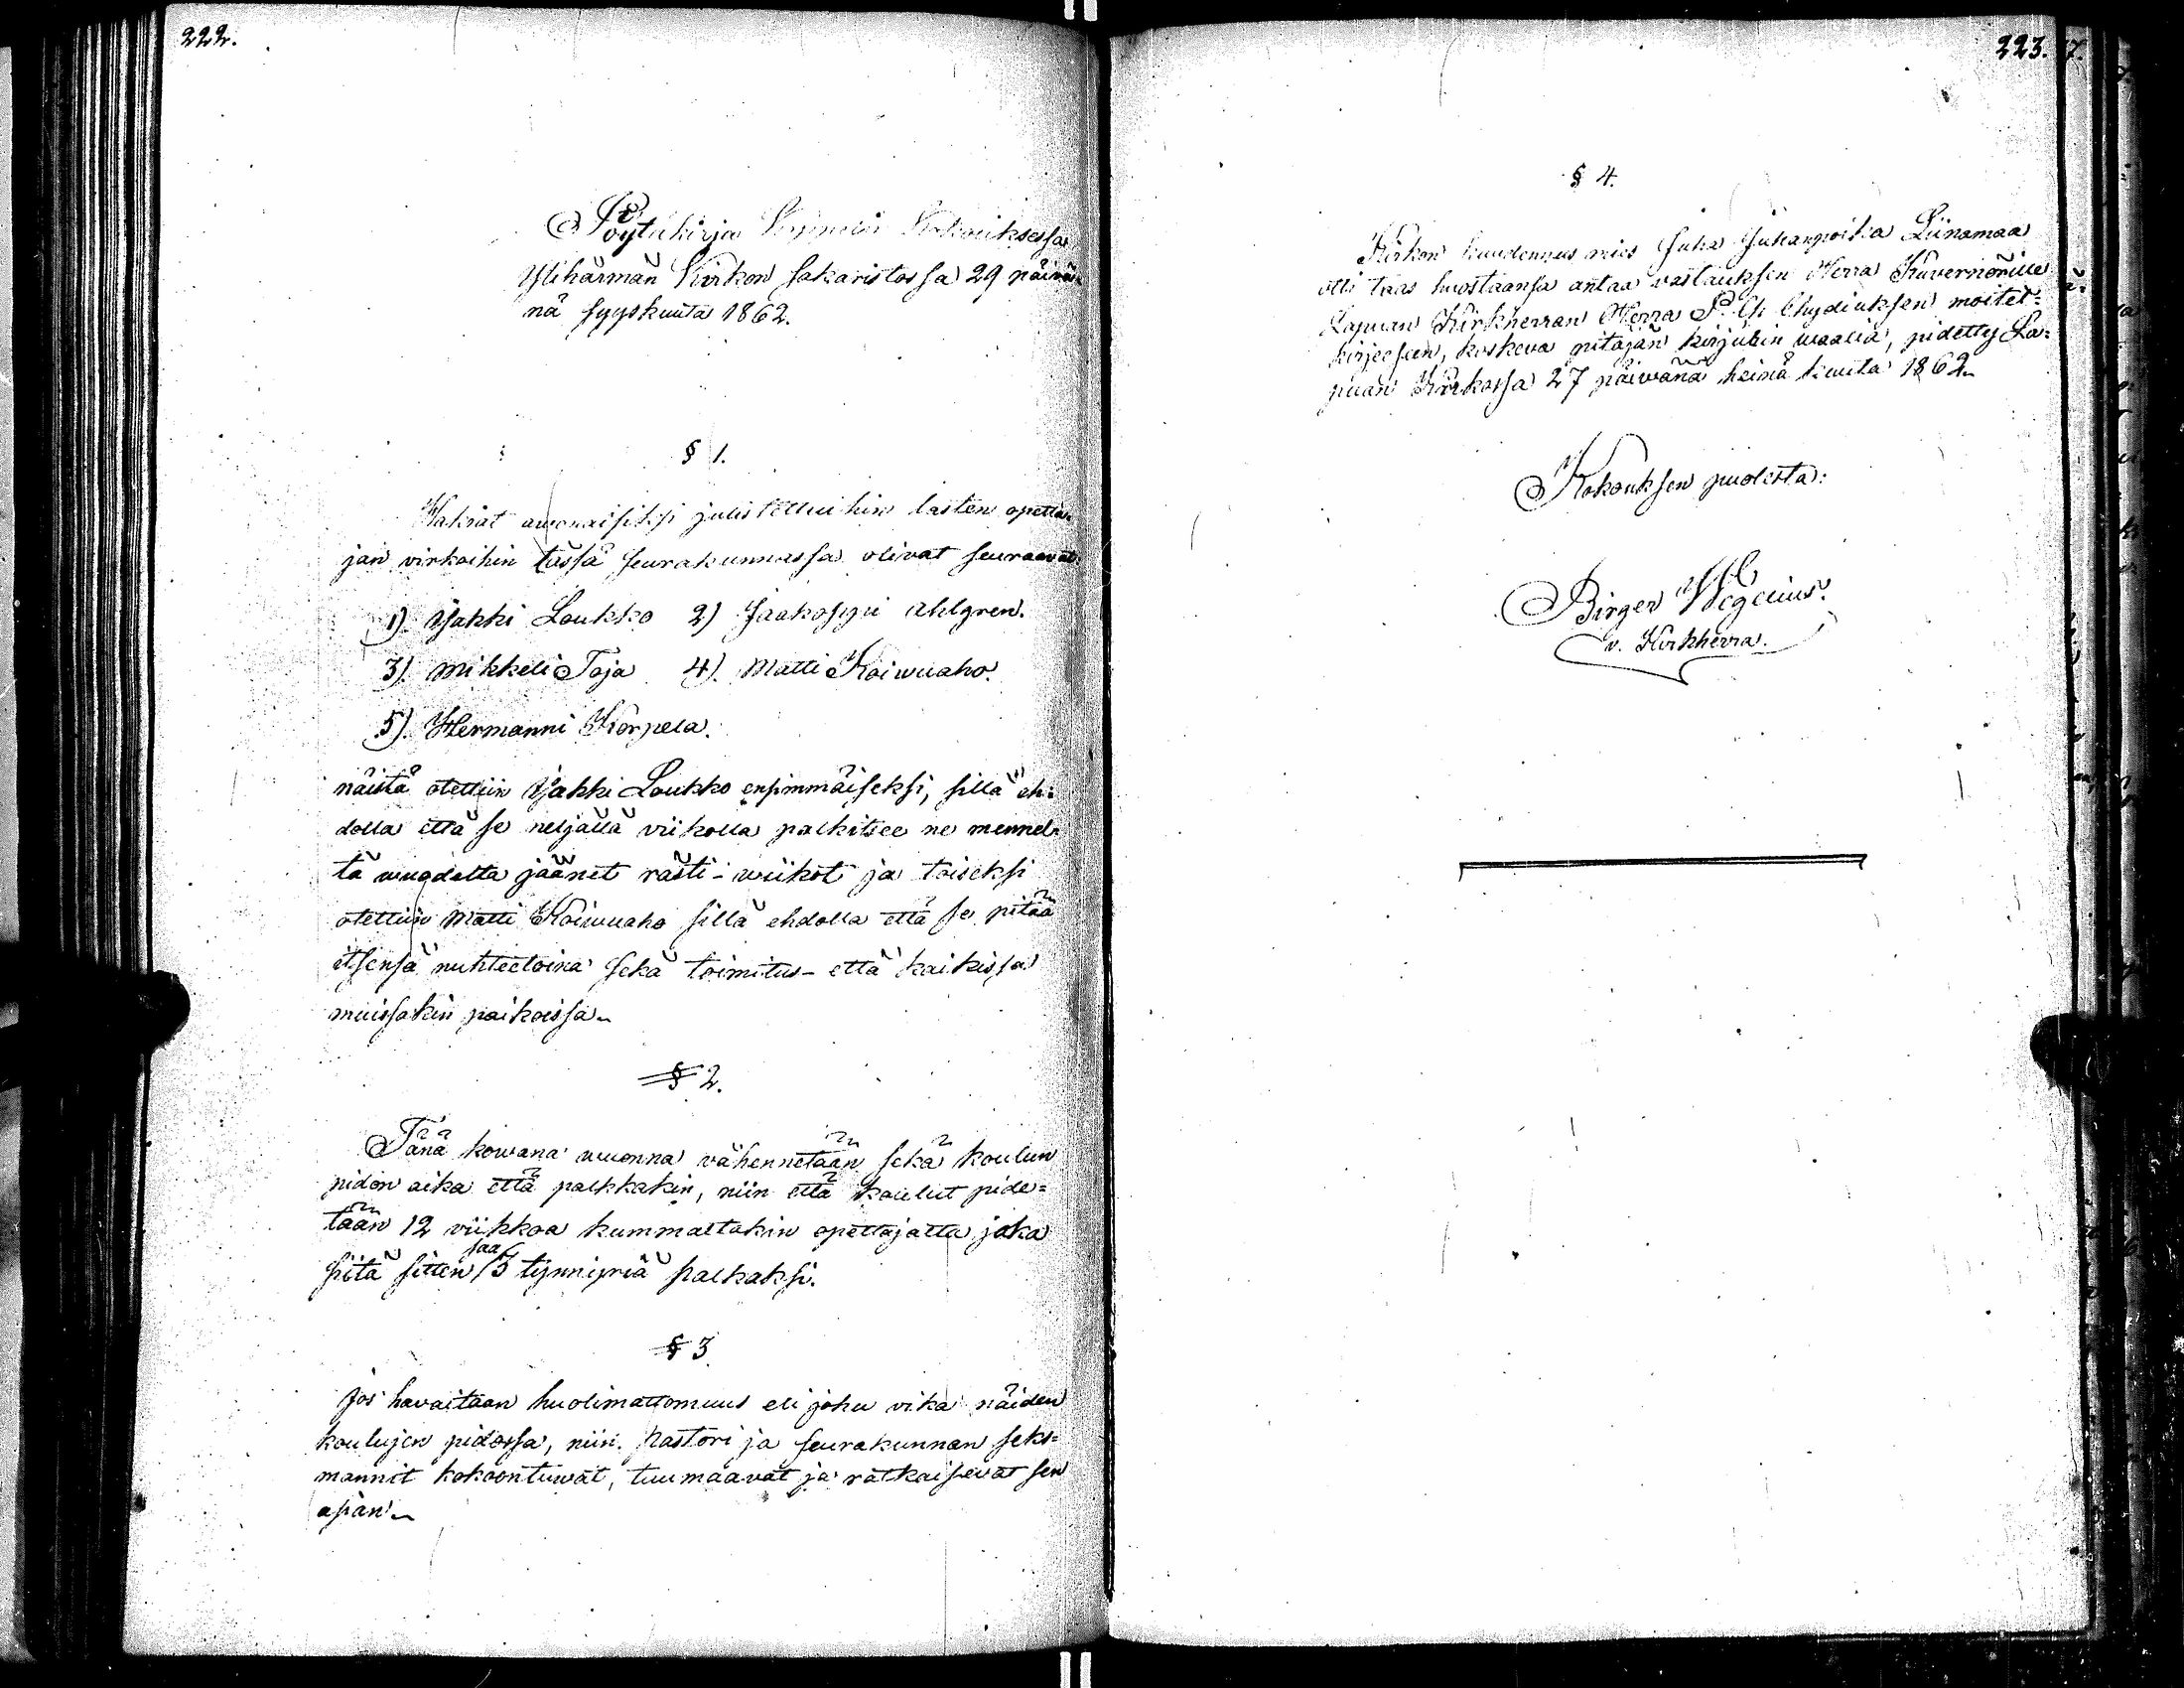 222.
Pöytäkirja Kokouksessa
Ylihärmän Kirkon sakaristossa 29 päivä-
nä syyskuuta 1862.
§ 1.
Hakiat awonaisiksi julistettuihin lasten opetta-
jan virkoihin tässä seurakunnassa olivat seuraavat:
1) Jakki Loukko 2) Jaakoppi Ahlgren.
3) Mikkeli Taja 4) Matti Koiwuaho.
5) Hermanni Korpela.
näistä otettiin Jakki Loukko ensimmäiseksi, sillä eh-
dolla että se neljällä viikolla palkitsee ne mennel-
tä wuodelta jäänet rästi-wiikot ja toiseksi
otettiin Matti Koiwuaho sillä ehdolla että se pitää
itsensä nuhteetoina sekä toimitus- että kaikissa
muissakin paikoissa.
§ 2.
Tänä kowana wuonna vähennetään sekä koulun
pidon aika että palkkakin, niin että koulut pide=
tään 12 viikkoa kummaltakin opettajalta joka
siitä sitten saa 3 tynnipriä palkaksi.
§ 3
Jos havaitaan huolimattomuus eli joku vika näiden
koulujen pidossa, niin Pastori ja seurakunnan seks=
mannit kokoontuwat, tuumaavat ja ratkaisevat sen
asian.
223.
§ 4.
Kirkon kuudennus mies Juha Juhanpoika Liinamaa
otti taas huostaansa antaa vastauksen Herra Kuvernörille
Lapuan Kirkherran Herra Chydeniuksen moitet=
kirjeeseen, koskeva pitäjän kirjurin waalia, pidetty La=
puan Kirkossa 27 päiwänä heinä kuuta 1862.
Kokouksen puolesta:
Birger Wegelius.
v. Kirkherra.